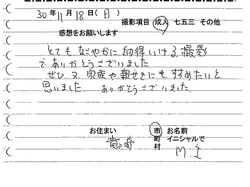 30年11月18日(日)
撮影項目 成人 七五三 その他
感想をお願いします
とてもなごやかに納得いける撮影
で ありがとうございました
ぜひ又 家庭や親せきにもすすめたいと
思いました ありがとうございました
お住まい 市町村 お名前 イニシャルで
M.I